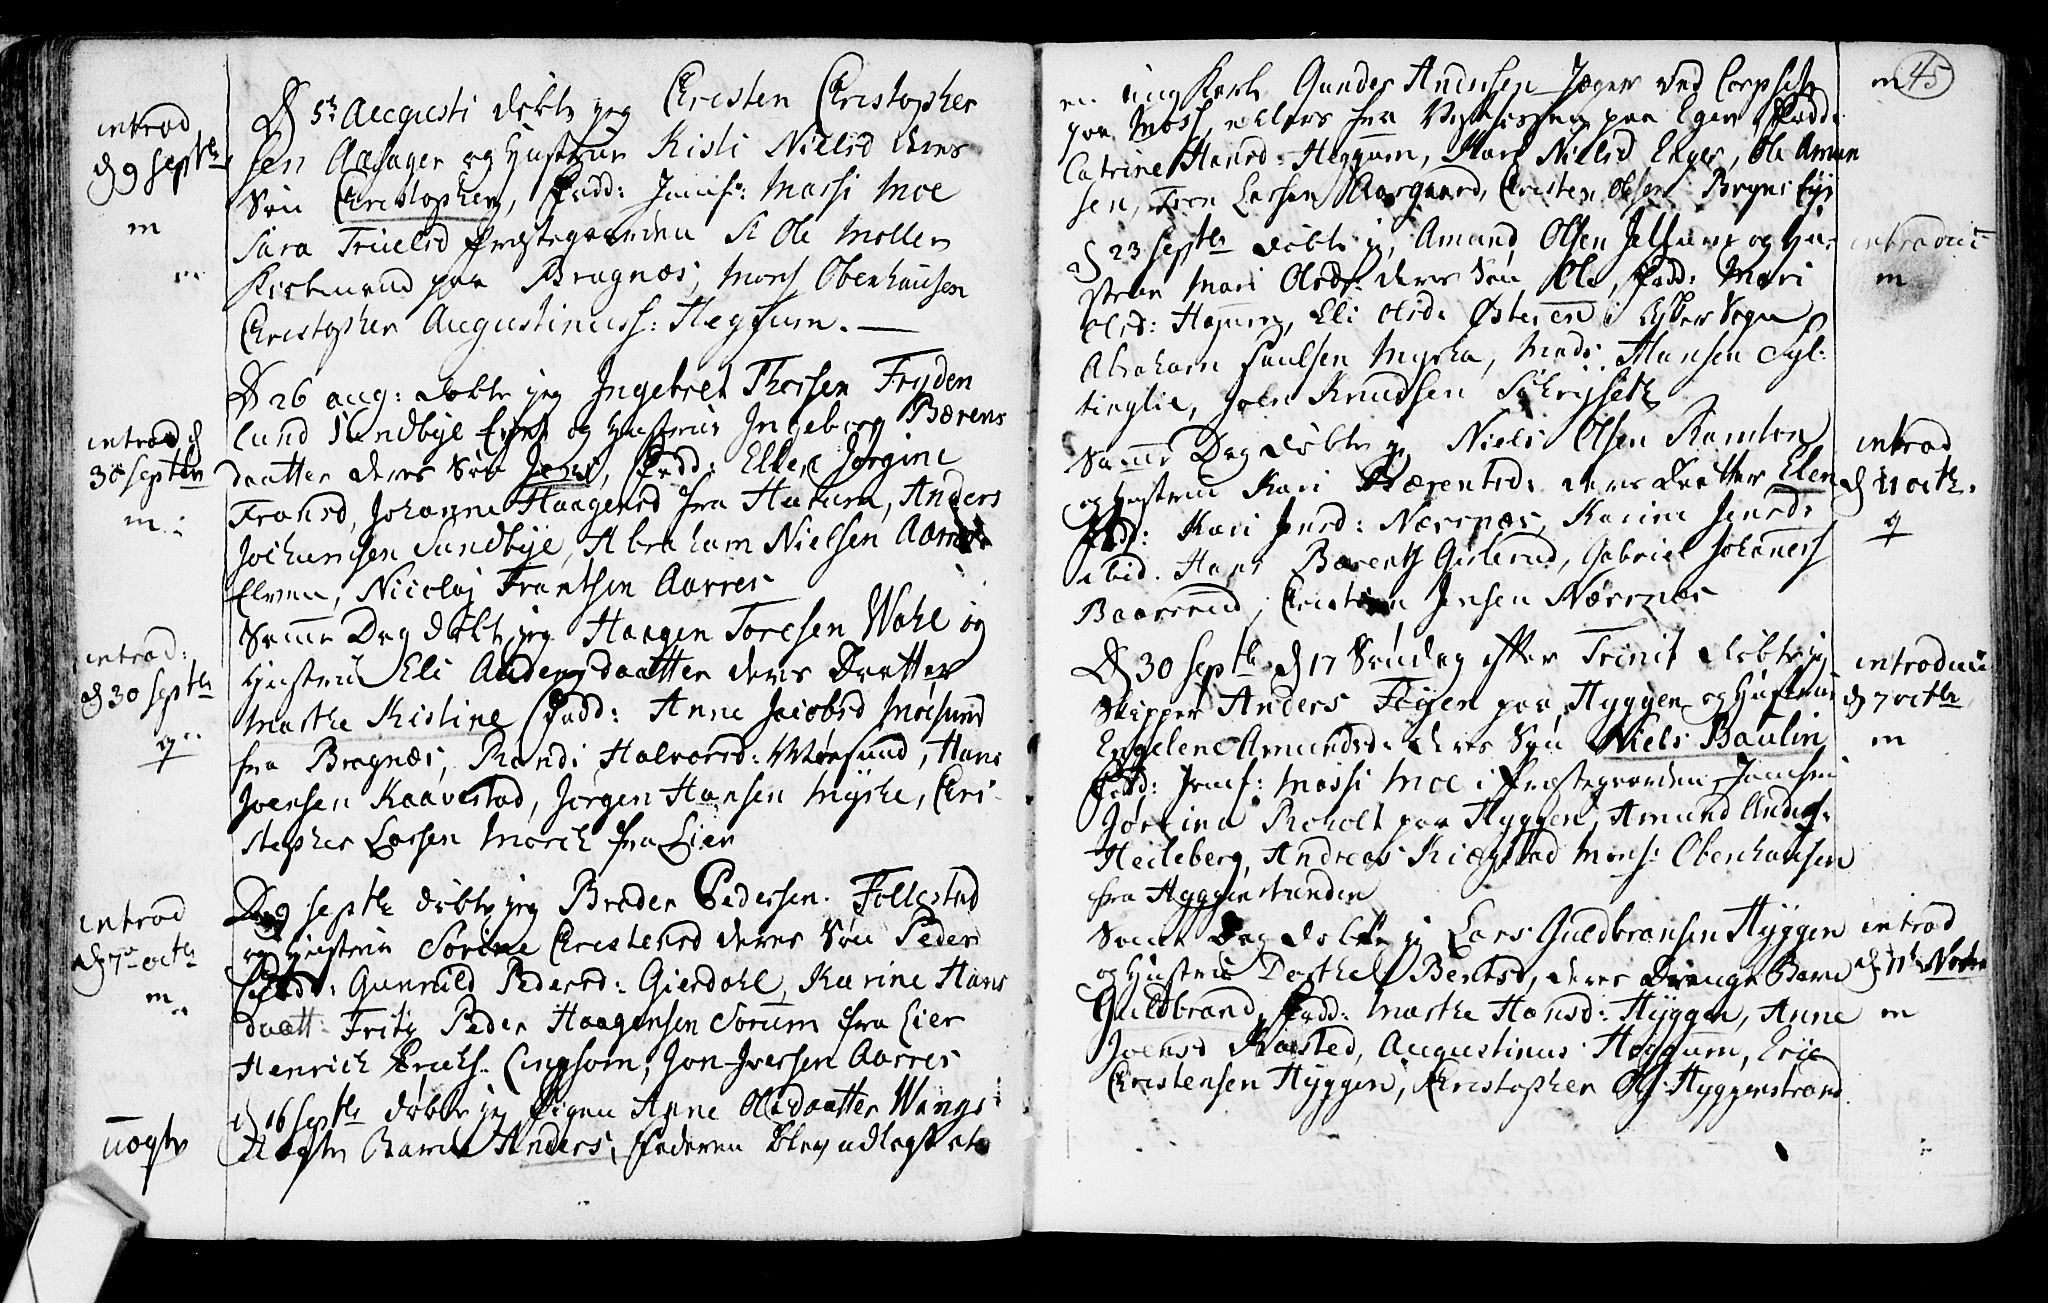 introd
d 9 septbr
m
D 5t Augusti döbte jeg Cristen Christopher
sen Aasager og Hustrue Kisti Nielsd deres
Sön Christopher, Fadd: Jomf: Massi Moe
Sara Truelsd Præstegaarden S Ole Möller
Kiöbmand paa Bragnæs, Mons Obenhausen
Christopher Augustinuss: Heggum.
introd d
30 septbr
m
D 26 aug: döbte jeg Ingebret Thorsen Fryden
lund Sundbye Eyet og Hustrue Ingeborg Bærens
daatter deres Sön Jens, Fadd: Ellen Jörgine
Fransd, Johanne Haagensd fra Hutum, Anders
Jochumsen Sundbye, Abraham Nielsen Aarres
Elven, Nicolaj Frantsen Aarres
introd:
d 30 septbr
q
Samme Dag döbte jeg Haagen Toresen Wahl og
Hustrue Eli Andersdaatter deres Daatter
Marthe Kistine Fadd: Anne Jacobsd Moesund
fra Bragnæs, Randi Halvorsd: Morsund, Hans
Joensen Kaavestad, Jörgen Hansen Myhre, Cri-
stopher Larsen Morch fra Lier
introd
d 7 octbr
m
D 9 septbr döbte jeg Brede Pedersen Follestad
og Hustrue Sorine Cristensd deres Sön Peder
Fadd: Gunnild Pedersd: Gierdahl, Karine Hans
daatt: Fritz Peder Haagensen Sorum fra Lier
Henrich Erichs. Cirpsom, Jon Iversen Aarres
uægte
D 16 septbr döbte jeg Pigen Anne Olsdaatter Wangs
Uægte Barn Anders, Faderen blev udlagt at
45
m
en ung Karl Gunder Andersen Jæger ved Corpset
paa Moss, ellers fra paa Eger Fadd:
Catrine Hansd: Heggum, Mari Nielsd Enger, Ole Amun
sen, Fren Larsen Aasgaard, Cristen Olsen Bryns Eye
introduc
m
D 23 septbr döbte jeg Amund Olsen Jelsum og Hu-
strue Mari Olsd: deres Sön Ole, Fadd: Mari
Olsd: Hajum, Eli Olsd: Østeren i Asker Sogn
Abraham Paulsen Myhra, Mads Hansen Syl-
tinglie, Joen Knudsen Söhrysseth
introd
d 21 octb:
q
Samme Dag döbte jeg Niels Olsen Ramton
og Hustrue Kari Bærentsd: deres Daatter Elen
Fadd: Kari Jensd: Nærsnæs, Karine Jensd:
ibid. Hans Barents Gislerud, Gabriel Johanness
Baarsrud, Cristian Jensen Nærsnæs
introduc
d 7 octbr
m
D 30 septbr d 17 Söndag efter Trinit döbte jeg
Skipper Anders Fejen paa Hyggen og Hustrue
Engelene Amundsd: deres Sön Niels Baulin
Fadd: Jomf: Massi Moe i Præstegaarden, Jomfru
Jörgina Roholt paa Hyggen, Amund Anders:
Heileberg, Andreas Kiægstad Mons: Obenhausen
fra Hyggenstranden
introd
d 11te Novbr
m
Samme Dag döbte jeg Lars Guldbransen Hyggen
og Hustrue Dorthe Bentsd, deres Drenge Barn
Guldbrand, Fadd: Marthe Hansd: Hyggen, Anne
Joensd Rasted, Augustinus Heggum, Eric
Cristensen Hyggen, Christopher Ols: Hyggenstrand.